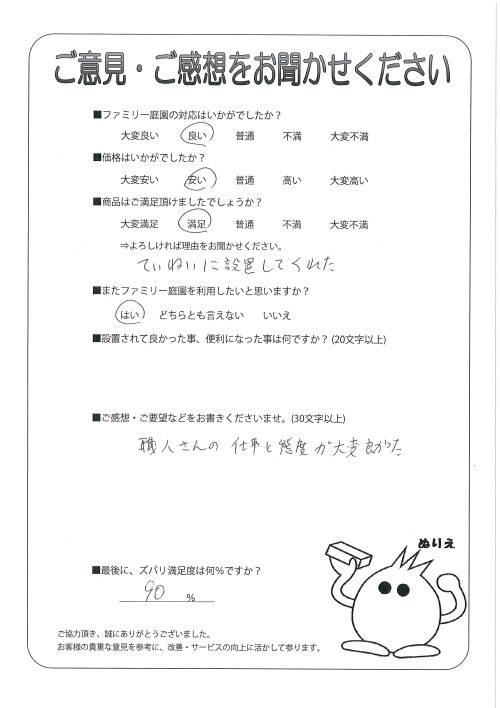 ご意見・ご感想をお聞かせください
■ファミリー庭園の対応はいかがでしたか？
大変良い 良い 普通 不満 大変不満
■価格はいかがでしたか？
大変安い 安い 普通 高い 大変高い
■商品はご満足頂けましたでしょうか？
大変満足 満足 普通 不満 大変不満
⇒よろしければ理由をお聞かせください。
ていねいに設置してくれた
■またファミリー庭園を利用したいと思いますか？
はい どちらとも言えない いいえ
■設置されて良かった事、便利になった事は何ですか？(20文字以上)
■ご感想・ご要望などをお書きくださいませ。(30文字以上)
職人さんの 仕事と態度が大変良かった
ぬりえ
■最後に、ズバリ満足度は何％ですか？
90 %
ご協力頂き、誠にありがとうございました。
お客様の貴重な意見を参考に、改善・サービスの向上に活かして参ります。